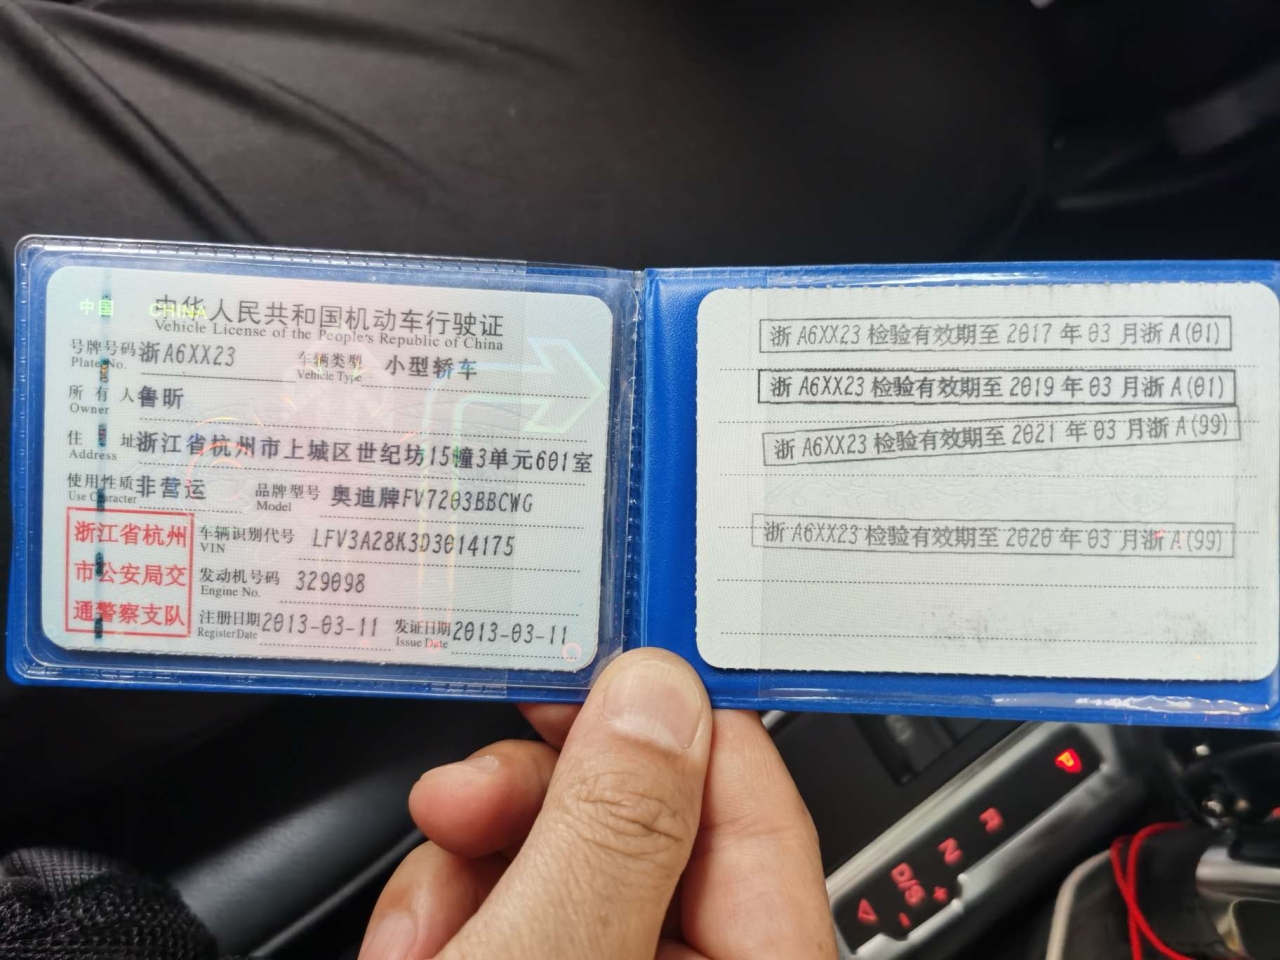 中国 CHINA
中华人民共和国机动车行驶证
Vehicle License of the People's Republic of China
号牌号码 浙A6XX23 车辆类型 小型轿车
Plate No. Vehicle Type
所有人 鲁昕
Owner
住址 浙江省杭州市上城区世纪坊15幢3单元601室
Address
使用性质 非营运 品牌型号 奥迪牌FV7203BBCWG
Use Character Model
浙江省杭州
市公安局交
通警察支队
车辆识别代号 LFV3A28K3D3014175
VIN
发动机号码 329098
Engine No.
注册日期 2013-03-11 发证日期 2013-03-11
Register Date Issue Date
浙 A6XX23 检验有效期至 2017 年 03 月浙 A(01)
浙 A6XX23 检验有效期至 2019 年 03 月浙 A(01)
浙 A6XX23 检验有效期至 2021 年 03 月浙 A(99)
浙 A6XX23 检验有效期至 2020 年 03 月浙 A(99)
P
R
N
D/S
+
-